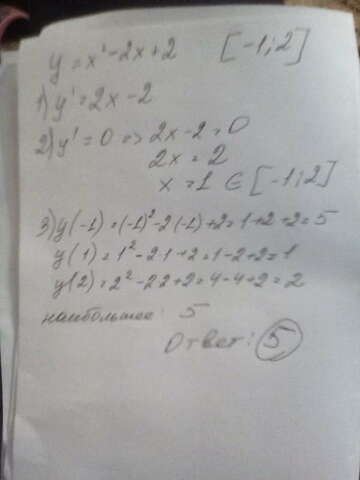 y = x² - 2x + 2 [-1; 2]
1) y' = 2x - 2
2) y' = 0 => 2x - 2 = 0
2x = 2
x = 1 ∈ [-1; 2]
3) y(-1) = (-1)² - 2(-1) + 2 = 1 + 2 + 2 = 5
y(1) = 1² - 2·1 + 2 = 1 - 2 + 2 = 1
y(2) = 2² - 2·2 + 2 = 4 - 4 + 2 = 2
наибольшее: 5
Ответ: 5